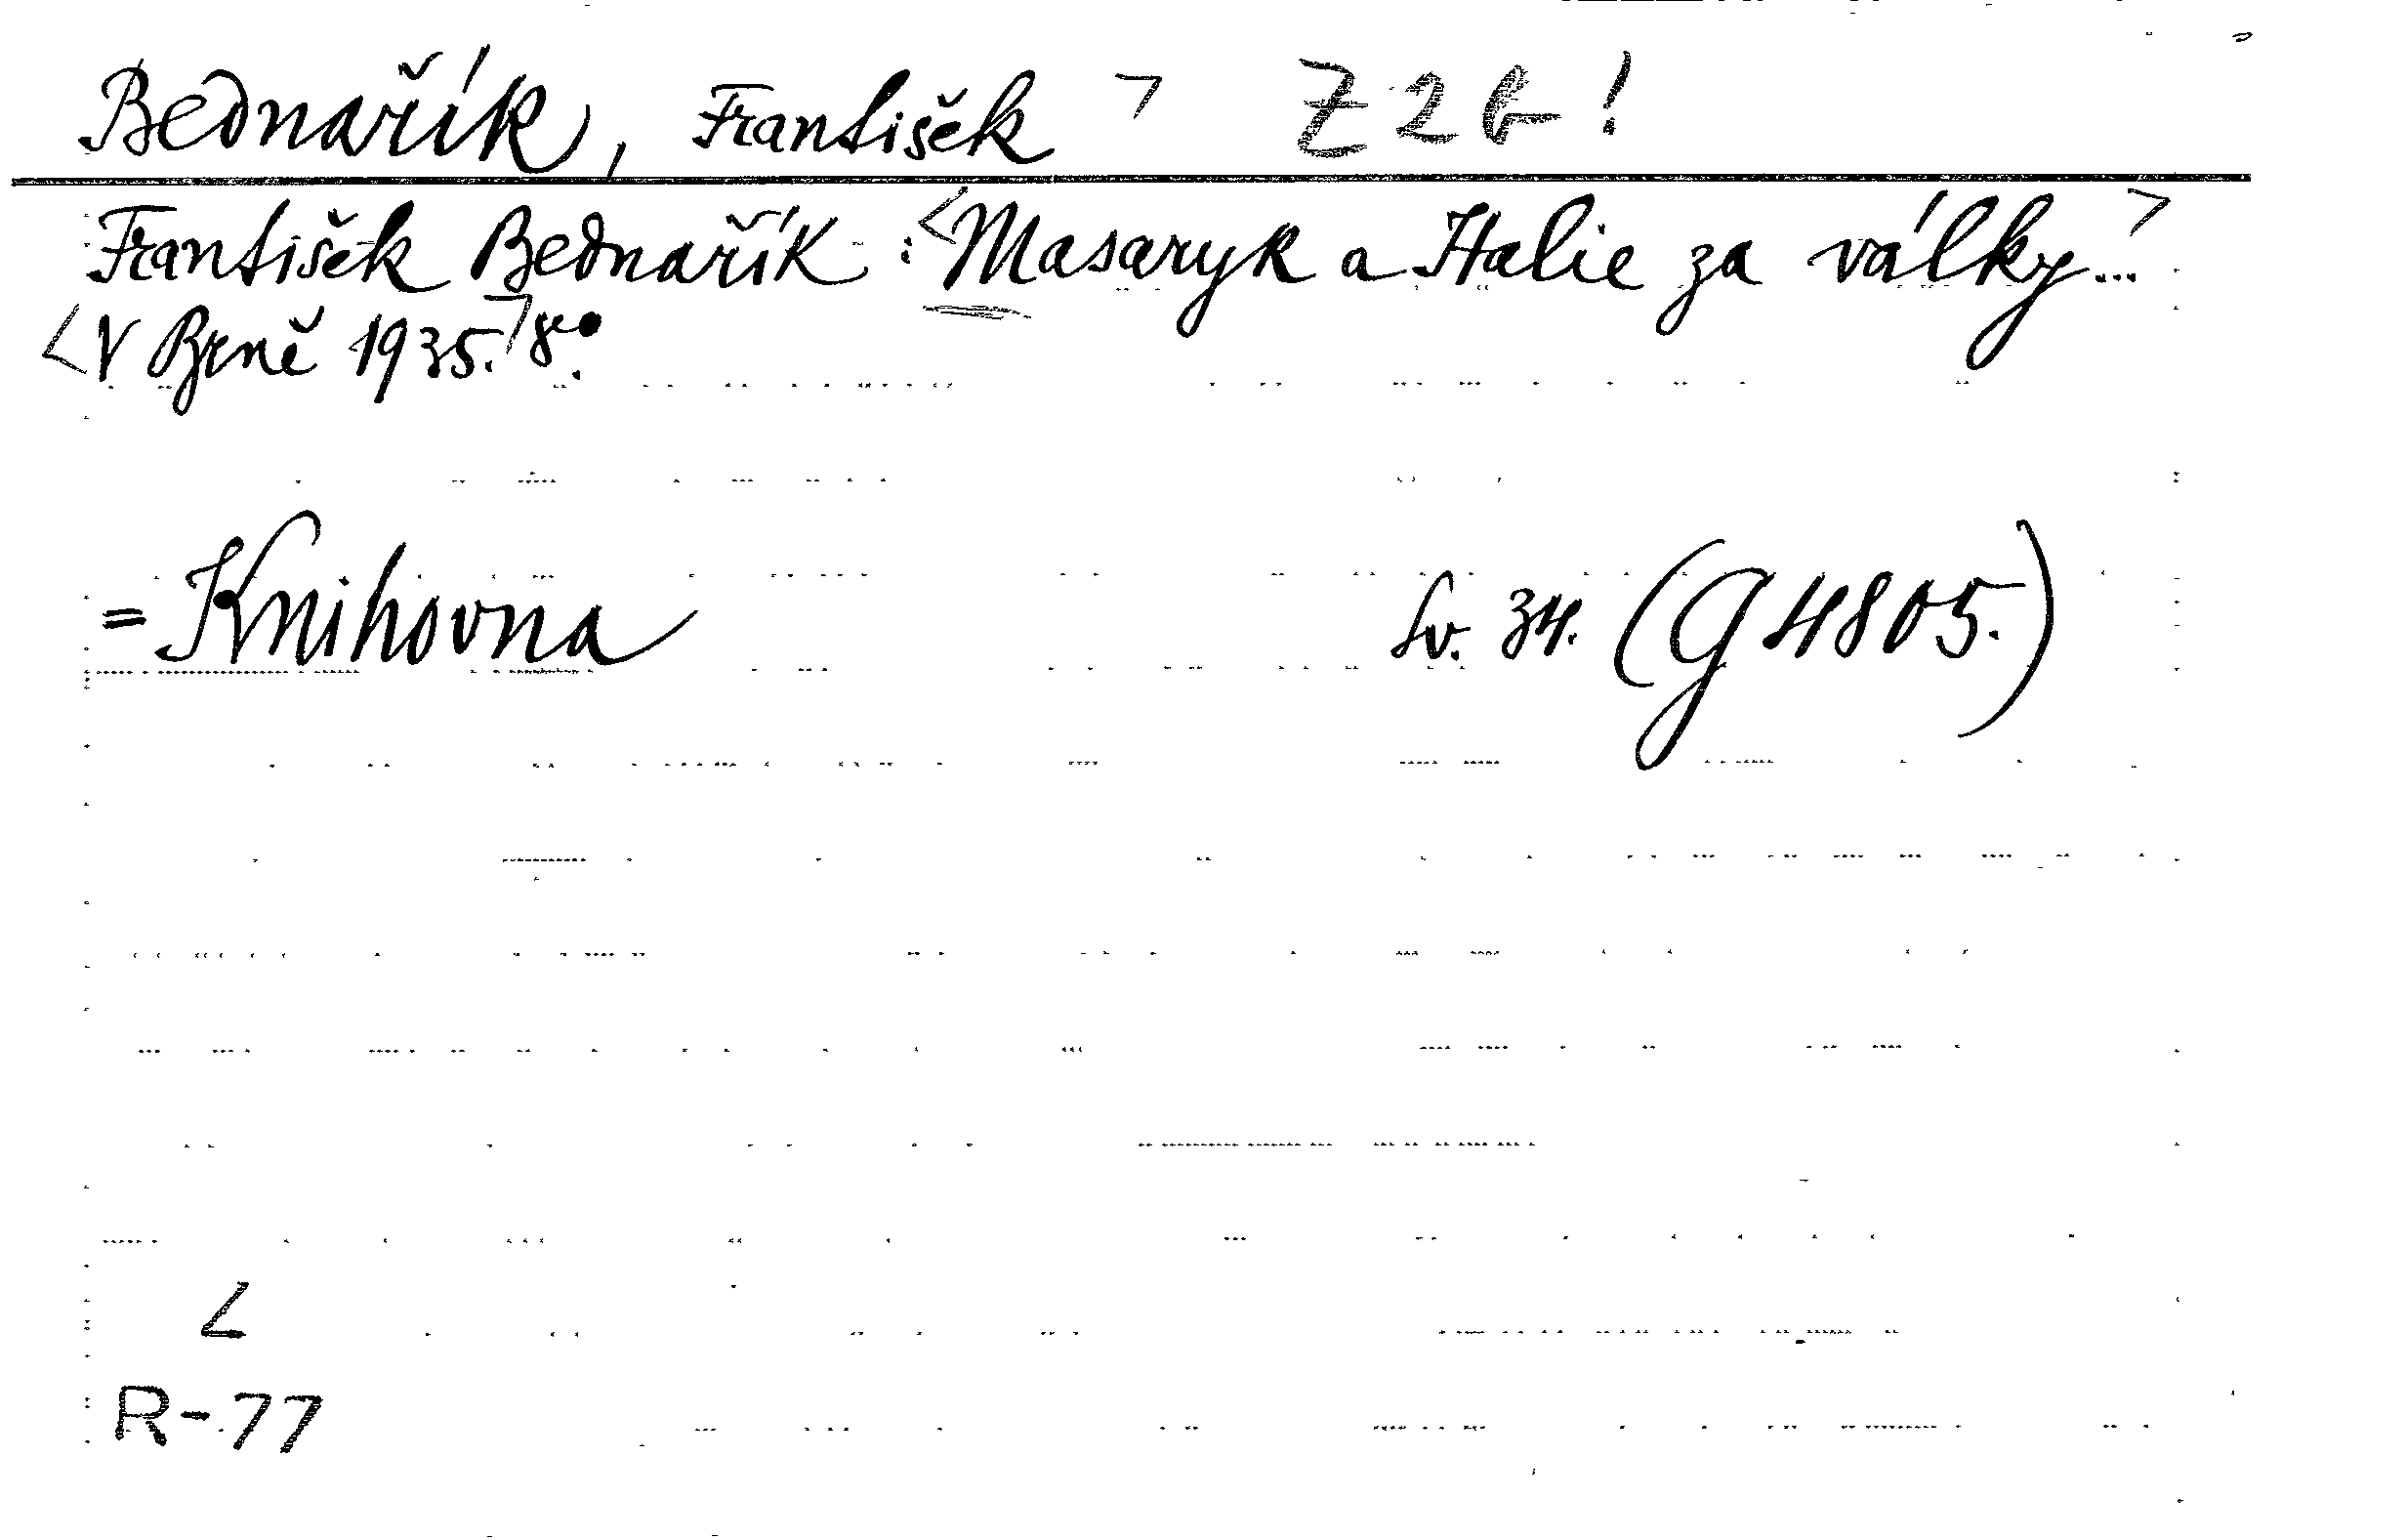 Bednařík, František ㄱ Z 2 b !
František Bednařík : <Masaryk a Italie za války...ㄱ
<V Brně 1935.ㄱ 8°.
= Knihovna Sv. 34. (G 4805.)
L
R-77